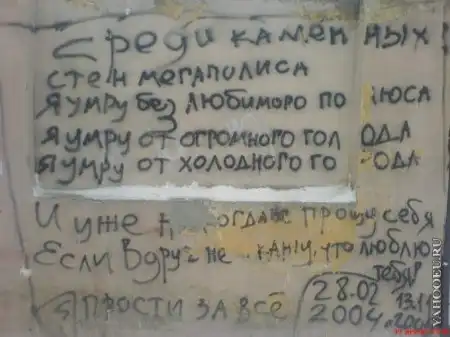 Среди камен ных
стен мегаполиса
Я умру без любимого по люса
Я умру от огромного гол ода
Я умру от холодного го рода
И уже н когда не прощу себя
Если вдруг не скажу, что люблю
тебя!
ПРОСТИ ЗА ВСЁ
28.02
2004
13.11
YAHOOEU.RU